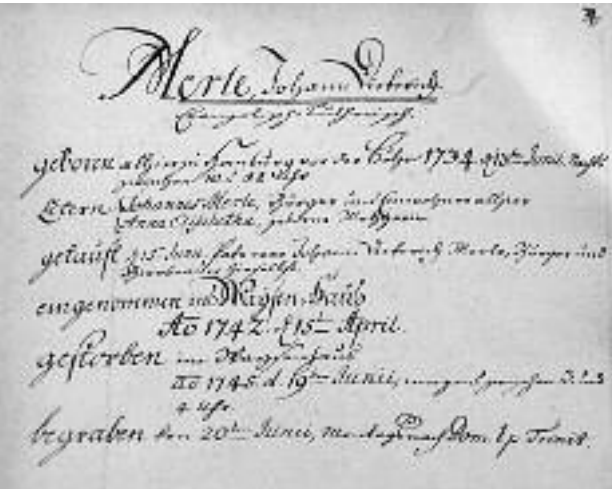 Merle, Johann Dieterich
Evangelisch Lutherisch.
geboren allhier zu Homburg vor der Höhe 1734. d 13ten Junii. Nachts
zwischen 10 u 11 Uhr
Eltern Johannes Merle, Bürger und Einwohner allhier
Anna Elisabetha, gebohrne
getauft d 15 Junii, Johann Dieterich Merle, Bürger und
eingenommen ins Waysen-Hauß
Ao 1742. d 15ten April.
gestorben im Waysenhauß
Ao 1745 d. 19ten Junii, morgens zwischen 3. und
4 Uhr.
begraben den 20ten Junii, nach Dom. 1 p Trinit.